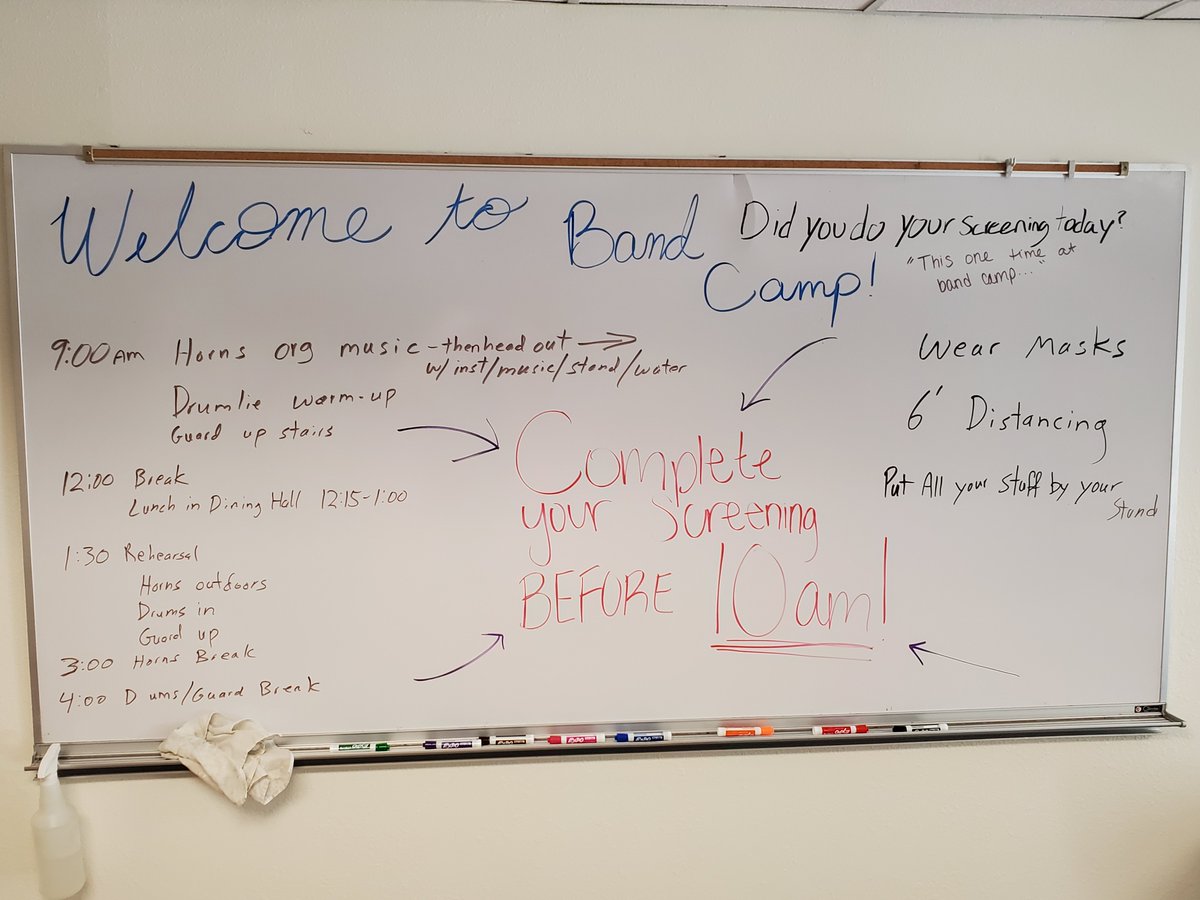 Welcome to Band
Camp!
Did you do your screening today?
"This one time at
band camp..."
9:00 Am Horns org music - then head out →
w/ inst/music/stand/water
Drumlie warm-up
Guard up stairs
12:00 Break
Lunch in Dining Hall 12:15-1:00
1:30 Rehearsal
Horns outdoors
Drums in
Guard up
3:00 Horns Break
4:00 D ums/Guard Break
Complete
your Screening
BEFORE 10am!
Wear Masks
6' Distancing
Put All your Stuff by your
Stand